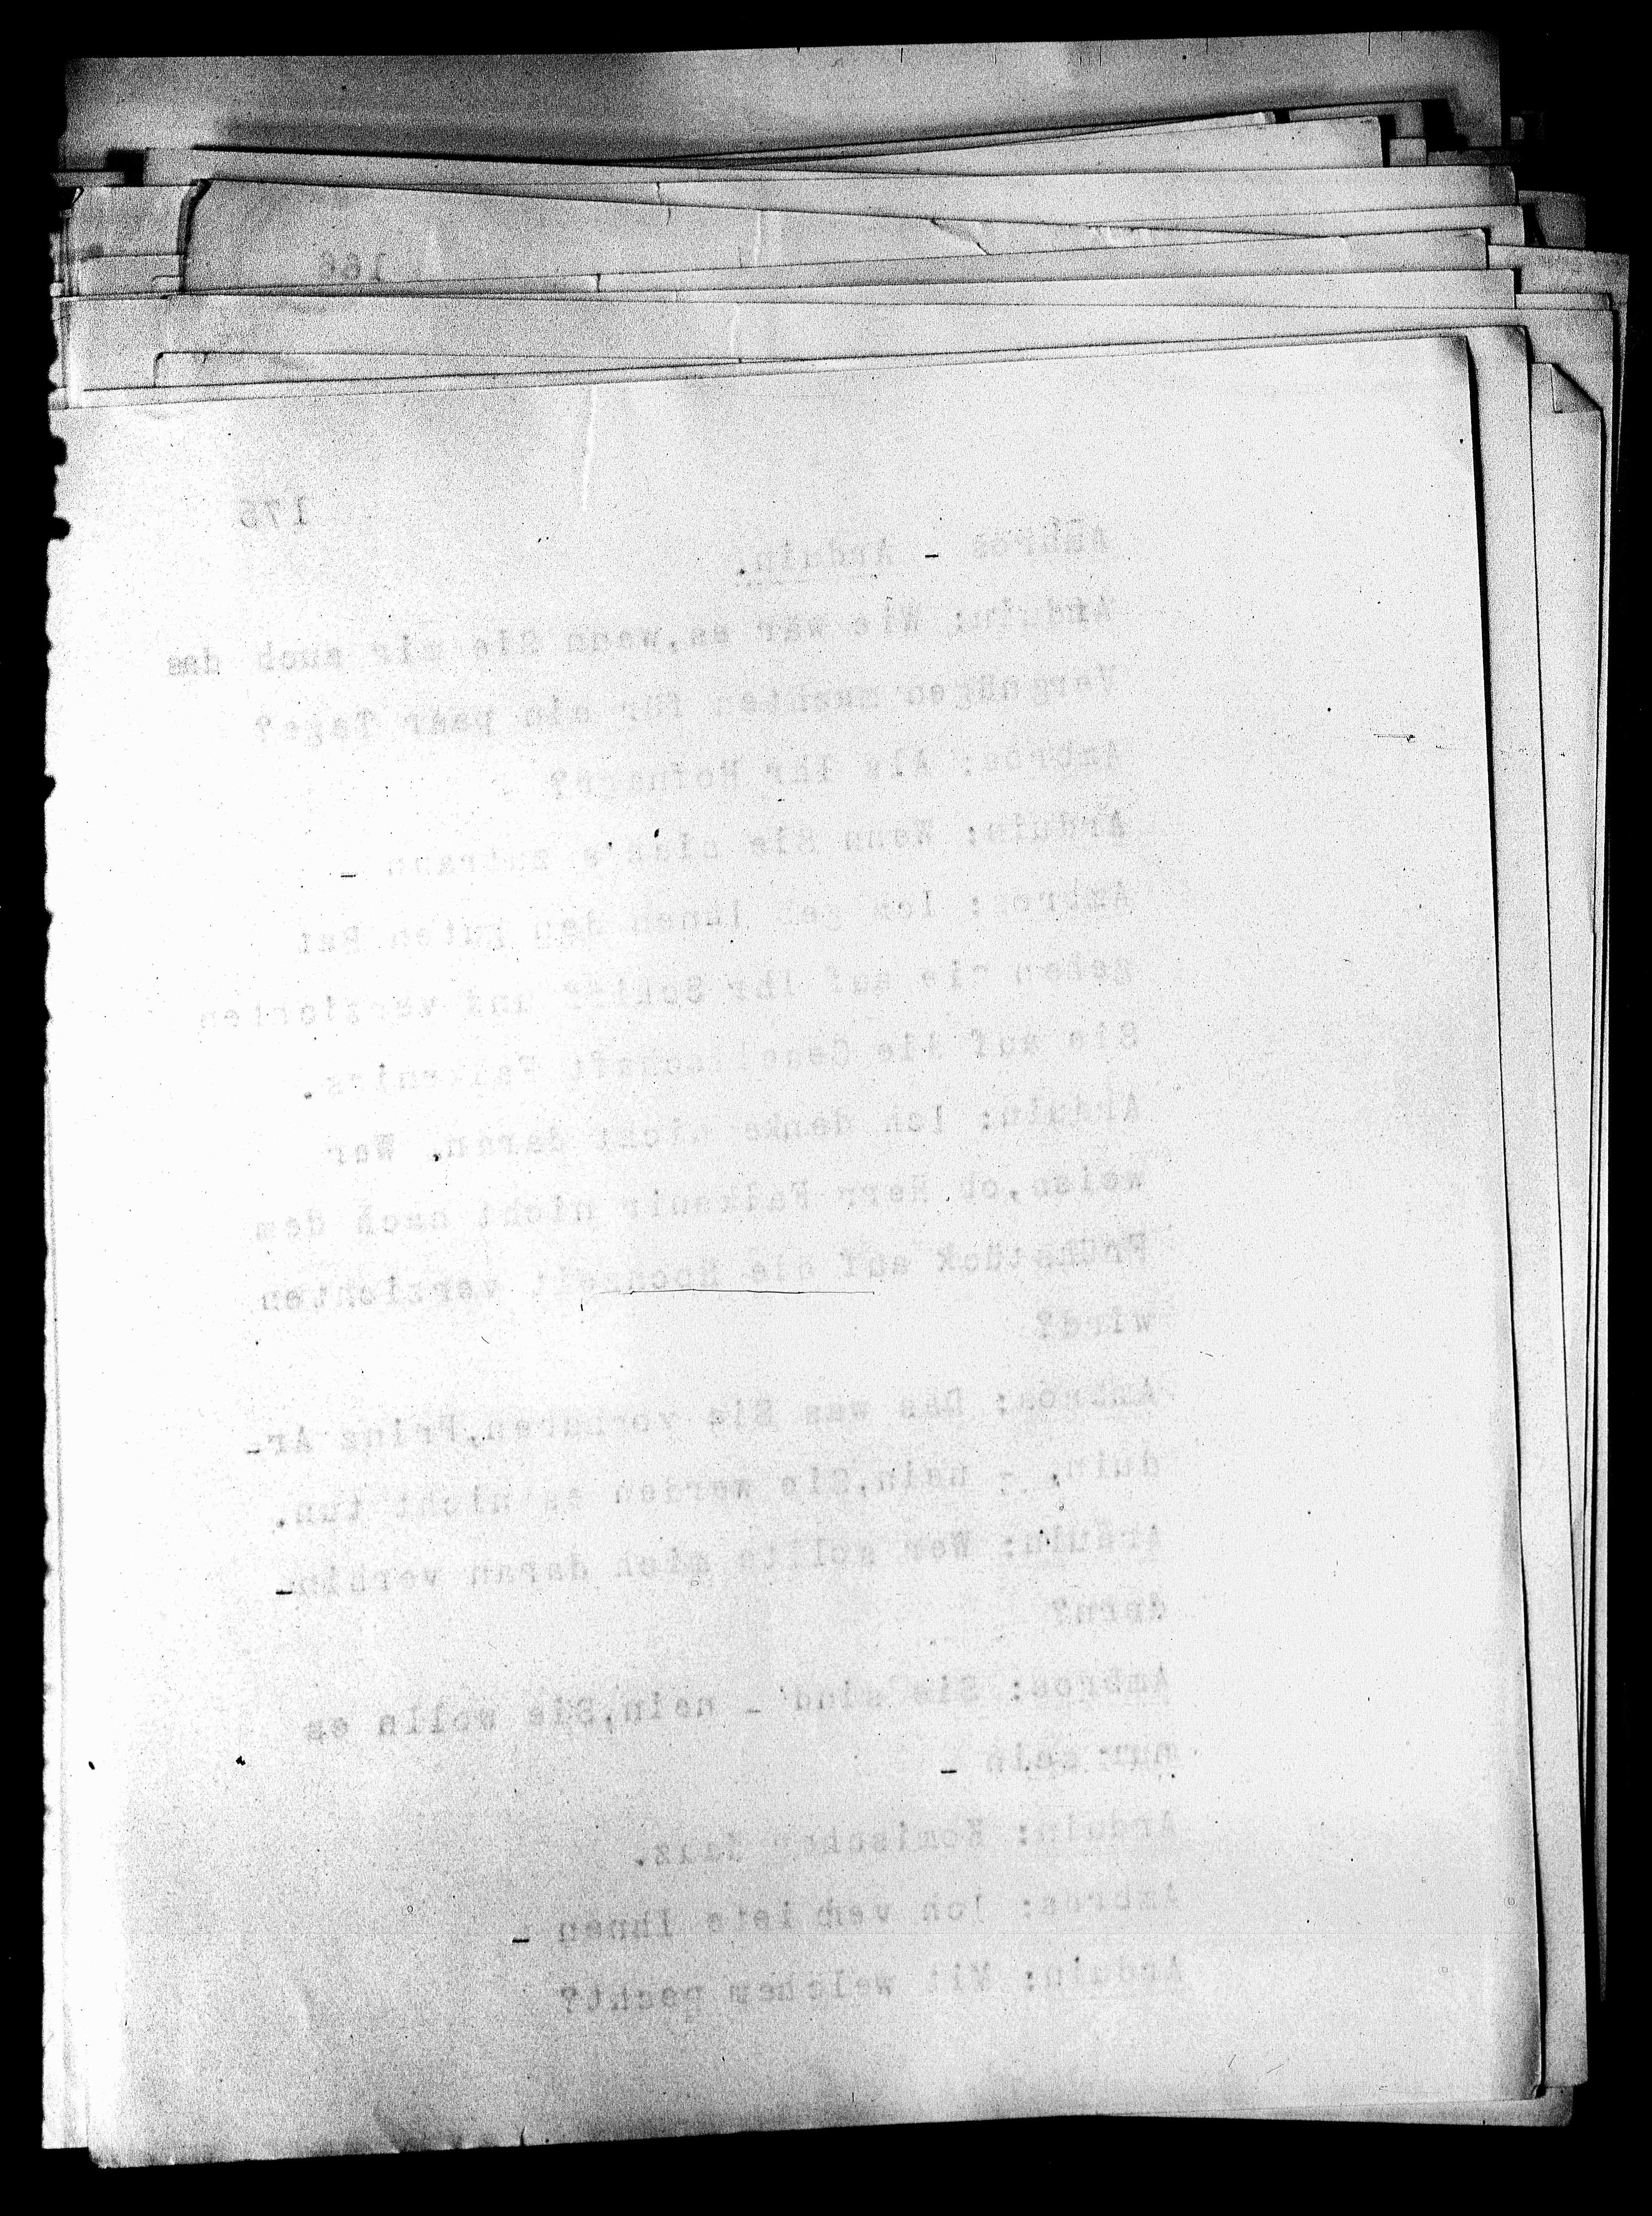 166
175
Ambros - Arduin.
Arduin: Wie wär es,wenn Sie mir auch das
Vergnügen machten für ein paar Tage?
Ambros: Als Ihr Hofnarr?
Arduin: Wenn Sie sich's zutraun -
Ambros: Ich geb Ihnen den guten Rat
gehen Sie auf Ihr Schiff und verzichten
Sie auf die Gesellschaft Falkneirs.
Arduin: Ich denke nicht daran. Wer
weiss,ob Herr nicht nach dem
Frühstück auf die Hochzeit verzichten
wird?
Ambros: Das was Sie vorhaben,Prinz Ar-
duin, - nein,Sie werden es nicht tun.
Arduin: Wer sollte mich daran verhin-
dern?
Ambros: Sie sind - nein,Sie wolln es
nur sein -
Arduin: Komischer Kauz.
Ambros: Ich verbiete Ihnen -
Arduin: Mit welchem Recht?